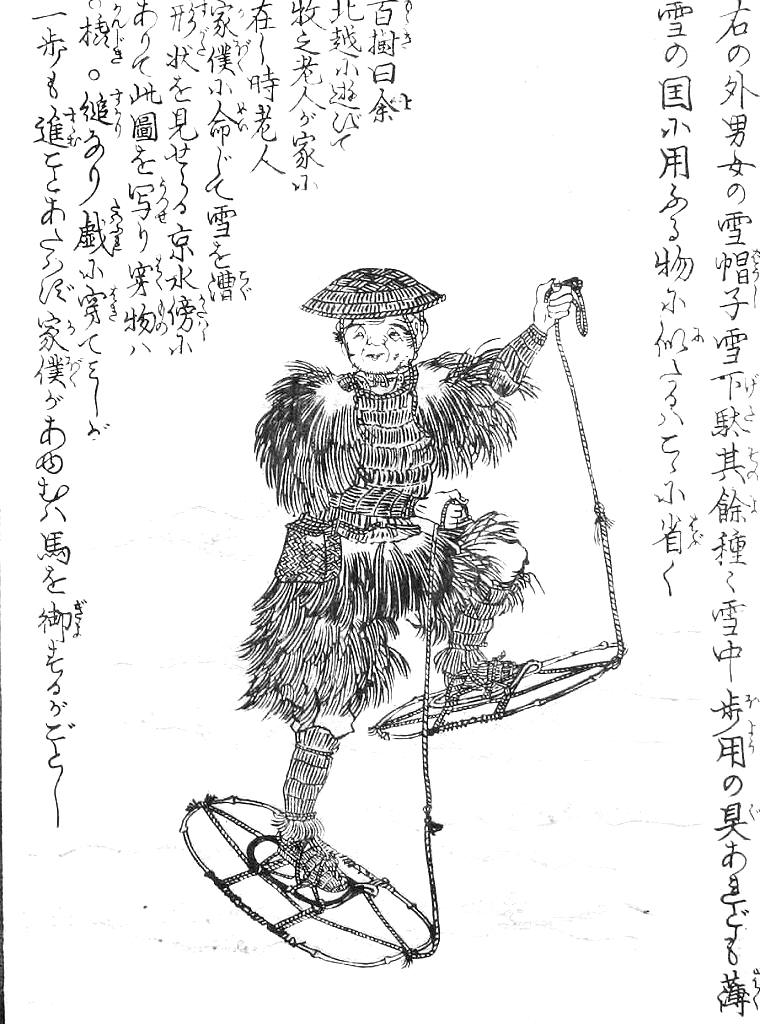 右の外男女の雪帽子雪下駄其餘種々雪中歩用の具あれども薄
雪の国に用ふる物に似たるはこゝに省く
百樹曰余
北越に遊びて
牧之老人が家に
在し時老人
家僕に命じて雪を漕
形状を見せらる京水傍に
ありて此圖を写り穿物は
○橇○縋なり戯に穿てみしが
一歩も進ことあたはず家僕があゆむは馬を御するがごとし